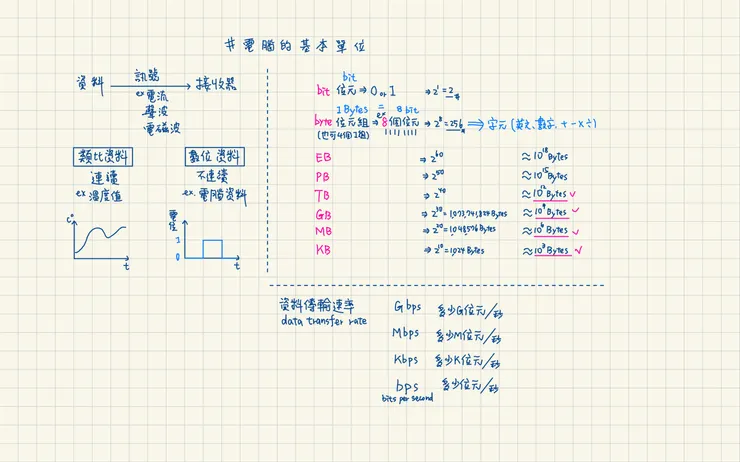 # 電腦的基本單位
資料 訊號 接收器
ex 電流
聲波
電磁波
類比資料
連續
ex 溫度值
c°
t
數位資料
不連續
ex. 電腦資料
電位
1
0
t
bit
bit 位元 ⇒ 0 or 1 ⇒ 2¹ = 2
1 Bytes = 8 bit
ex
byte 位元組 ⇒ 8個位元 ⇒ 2⁸ = 256 ⇒ 字元 (英文、數字、+ - × ÷)
(也有4個1組)
EB ⇒ 2⁶⁰ ≈ 10¹⁸ Bytes
PB ⇒ 2⁵⁰ ≈ 10¹⁵ Bytes
TB ⇒ 2⁴⁰ ≈ 10¹² Bytes ✓
GB ⇒ 2³⁰ = 1,073,741,824 Bytes ≈ 10⁹ Bytes ✓
MB ⇒ 2²⁰ = 1,048,576 Bytes ≈ 10⁶ Bytes ✓
KB ⇒ 2¹⁰ = 1,024 Bytes ≈ 10³ Bytes ✓
資料傳輸速率
data transfer rate
Gbps 多少G位元/秒
Mbps 多少M位元/秒
Kbps 多少K位元/秒
bps 多少位元/秒
bits per second